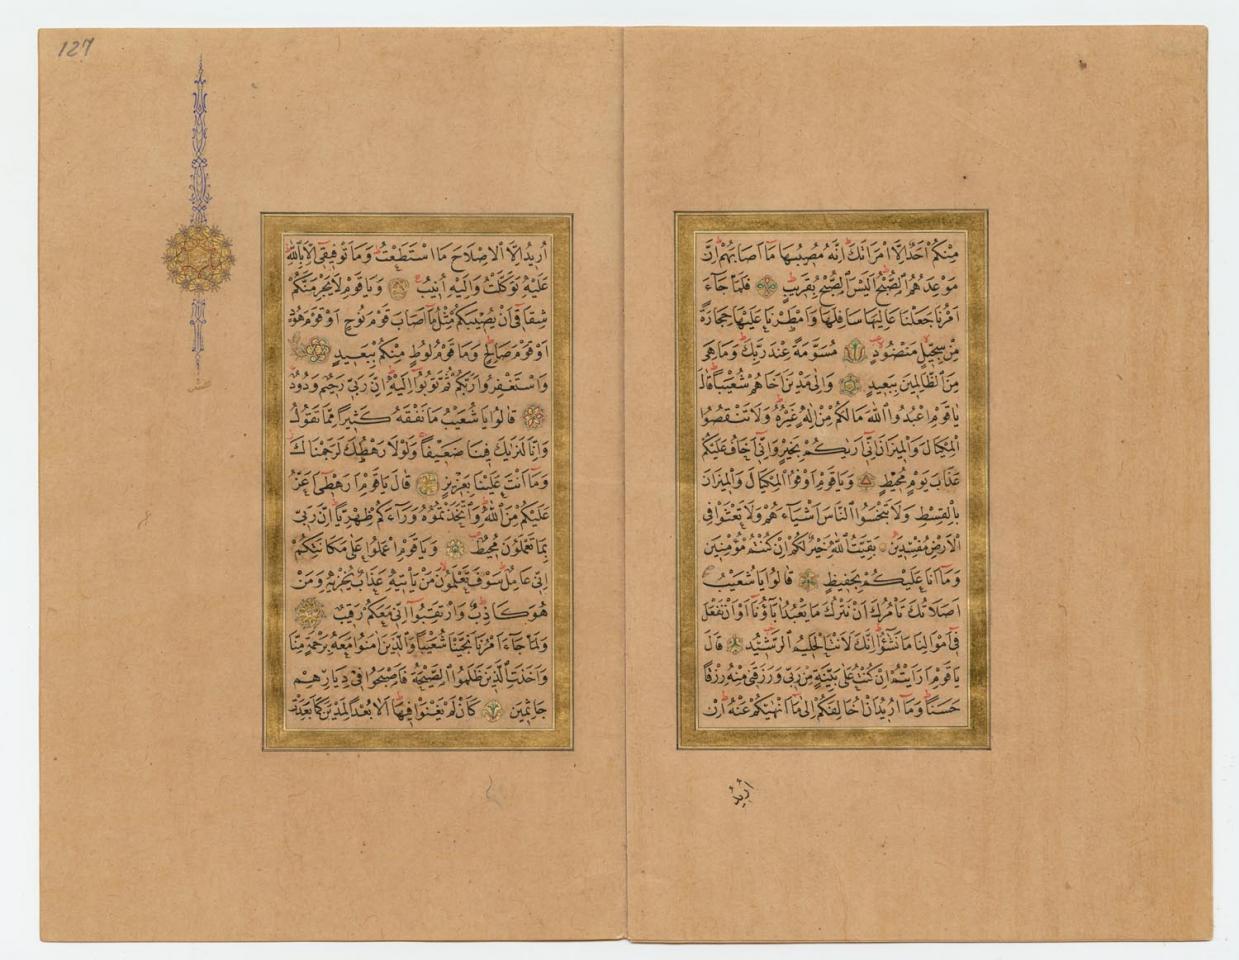 مِنْكُمْ اَحَدٌ اِلَّا امْرَاَتَكَ اِنَّهُ مُصِيبُهَا مَٓا اَصَابَهُمْ اِنَّ
مَوْعِدَهُمُ الصُّبْحُ اَلَيْسَ الصُّبْحُ بِقَرِيبٍ فَلَمَّا جَٓاءَ
اَمْرُنَا جَعَلْنَا عَالِيَهَا سَافِلَهَا وَاَمْطَرْنَا عَلَيْهَا حِجَارَةً
مِنْ سِجِّيلٍ مَنْضُودٍ مُسَوَّمَةً عِنْدَ رَبِّكَ وَمَا هِيَ
مِنَ الظَّالِمِينَ بِبَعِيدٍ وَاِلٰى مَدْيَنَ اَخَاهُمْ شُعَيْبًا قَالَ
يَاقَوْمِ اعْبُدُوا اللّٰهَ مَالَكُمْ مِنْ اِلٰهٍ غَيْرُهُ وَلَا تَنْقُصُوا
الْمِكْيَالَ وَالْمِيزَانَ اِنِّٓي اَرٰيكُمْ بِخَيْرٍ وَاِنِّٓي اَخَافُ عَلَيْكُمْ
عَذَابَ يَوْمٍ مُحِيطٍ وَيَاقَوْمِ اَوْفُوا الْمِكْيَالَ وَالْمِيزَانَ
بِالْقِسْطِ وَلَا تَبْخَسُوا النَّاسَ اَشْيَٓاءَهُمْ وَلَا تَعْثَوْا فِي
الْاَرْضِ مُفْسِدِينَ بَقِيَّتُ اللّٰهِ خَيْرٌ لَكُمْ اِنْ كُنْتُمْ مُؤْمِنِينَ
وَمَٓا اَنَا عَلَيْكُمْ بِحَفِيظٍ قَالُوا يَاشُعَيْبُ
اَصَلَاتُكَ تَاْمُرُكَ اَنْ نَتْرُكَ مَا يَعْبُدُ اٰبَٓاؤُنَٓا اَوْ اَنْ نَفْعَلَ
فِٓي اَمْوَالِنَا مَا نَشَٓاؤُا اِنَّكَ لَاَنْتَ الْحَلِيمُ الرَّشِيدُ قَالَ
يَاقَوْمِ اَرَاَيْتُمْ اِنْ كُنْتُ عَلٰى بَيِّنَةٍ مِنْ رَبِّي وَرَزَقَنِي مِنْهُ رِزْقًا
حَسَنًا وَمَٓا اُرِيدُ اَنْ اُخَالِفَكُمْ اِلٰى مَٓا اَنْهٰيكُمْ عَنْهُ اِنْ
اُرِيدُ
127
اُرِيدُ اِلَّا الْاِصْلَاحَ مَا اسْتَطَعْتُ وَمَا تَوْفِيقِٓي اِلَّا بِاللّٰهِ
عَلَيْهِ تَوَكَّلْتُ وَاِلَيْهِ اُنِيبُ وَيَاقَوْمِ لَا يَجْرِمَنَّكُمْ
شِقَاقِٓي اَنْ يُصِيبَكُمْ مِثْلُ مَٓا اَصَابَ قَوْمَ نُوحٍ اَوْ قَوْمَ هُودٍ
اَوْ قَوْمَ صَالِحٍ وَمَا قَوْمُ لُوطٍ مِنْكُمْ بِبَعِيدٍ
وَاسْتَغْفِرُوا رَبَّكُمْ ثُمَّ تُوبُٓوا اِلَيْهِ اِنَّ رَبِّي رَحِيمٌ وَدُودٌ
قَالُوا يَاشُعَيْبُ مَا نَفْقَهُ كَثِيرًا مِمَّا تَقُولُ
وَاِنَّا لَنَرٰيكَ فِينَا ضَعِيفًا وَلَوْلَا رَهْطُكَ لَرَجَمْنَاكَ
وَمَٓا اَنْتَ عَلَيْنَا بِعَزِيزٍ قَالَ يَاقَوْمِ اَرَهْطِٓي اَعَزُّ
عَلَيْكُمْ مِنَ اللّٰهِ وَاتَّخَذْتُمُوهُ وَرَٓاءَكُمْ ظِهْرِيًّا اِنَّ رَبِّي
بِمَا تَعْمَلُونَ مُحِيطٌ وَيَاقَوْمِ اعْمَلُوا عَلٰى مَكَانَتِكُمْ
اِنِّي عَامِلٌ سَوْفَ تَعْلَمُونَ مَنْ يَاْتِيهِ عَذَابٌ يُخْزِيهِ وَمَنْ
هُوَ كَاذِبٌ وَارْتَقِبُٓوا اِنِّي مَعَكُمْ رَقِيبٌ
وَلَمَّا جَٓاءَ اَمْرُنَا نَجَّيْنَا شُعَيْبًا وَالَّذِينَ اٰمَنُوا مَعَهُ بِرَحْمَةٍ مِنَّا
وَاَخَذَتِ الَّذِينَ ظَلَمُوا الصَّيْحَةُ فَاَصْبَحُوا فِي دِيَارِهِمْ
جَاثِمِينَ كَاَنْ لَمْ يَغْنَوْا فِيهَا اَلَا بُعْدًا لِمَدْيَنَ كَمَا بَعِدَتْ